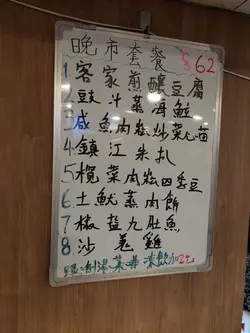 晚市套餐 $62
1. 客家煎釀豆腐
2. 豉汁蒸海鮮
3. 咸魚肉崧炒菜苗
4. 鎮江朱扒
5. 欖菜肉崧四季豆
6. 土魷蒸肉餅
7. 椒盐九肚魚
8. 沙羌雞
跟 例湯 菜 啡 凍飲加2元